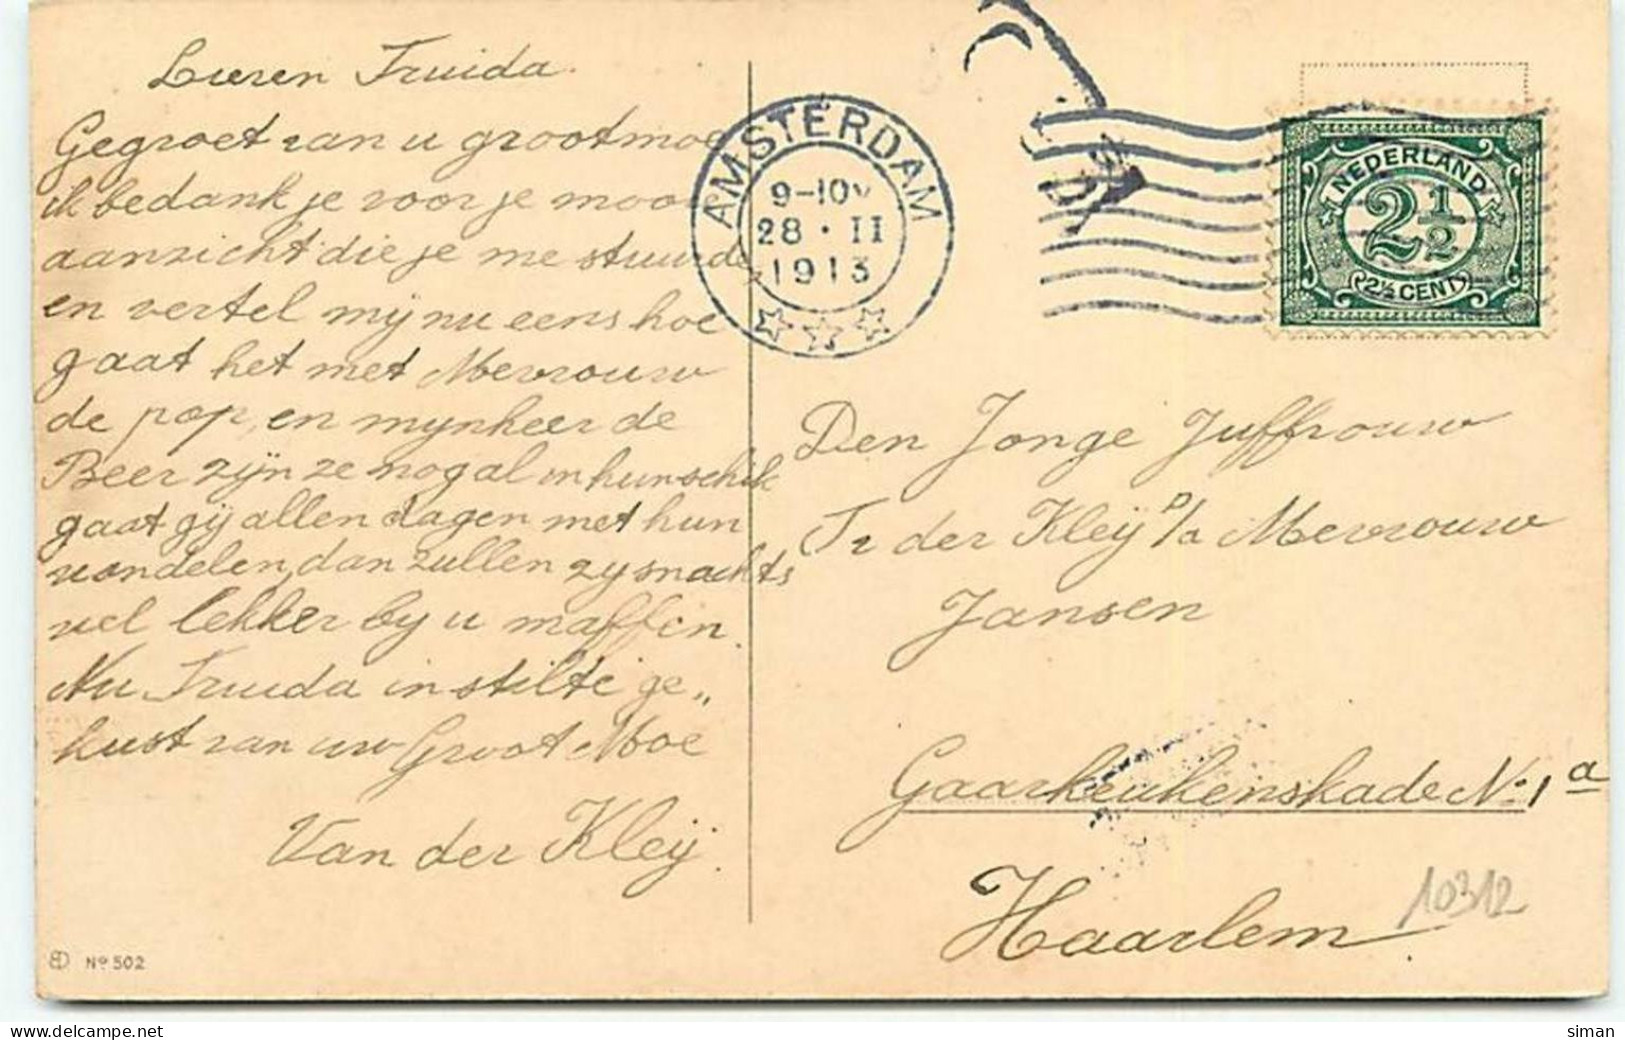 Lieren Truida.
Gegroet van u grootmoe
ik bedank je voor je mooie
aanzicht die je me stuurde
en vertel mij nu eens hoe
gaat het met Mevrouw
de pop, en mynheer de
Beer zijn ze nog al in hun schik
gaat gij allen dagen met hun
wandelen, dan zullen zy snachts
wel lekker by u maffen.
Nu Truida in stilte ge„
kust van uw Groot Moe
Van der Kleij.
No 502
AMSTERDAM
9-10V
28 · II
1913
NEDERLAND
2 1/2
2½ CENT
Den Jonge Juffrouw
Tr der Kleij P/a Mevrouw
Jansen
Gaarkeukenskade No 1a
Haarlem
10312
siman